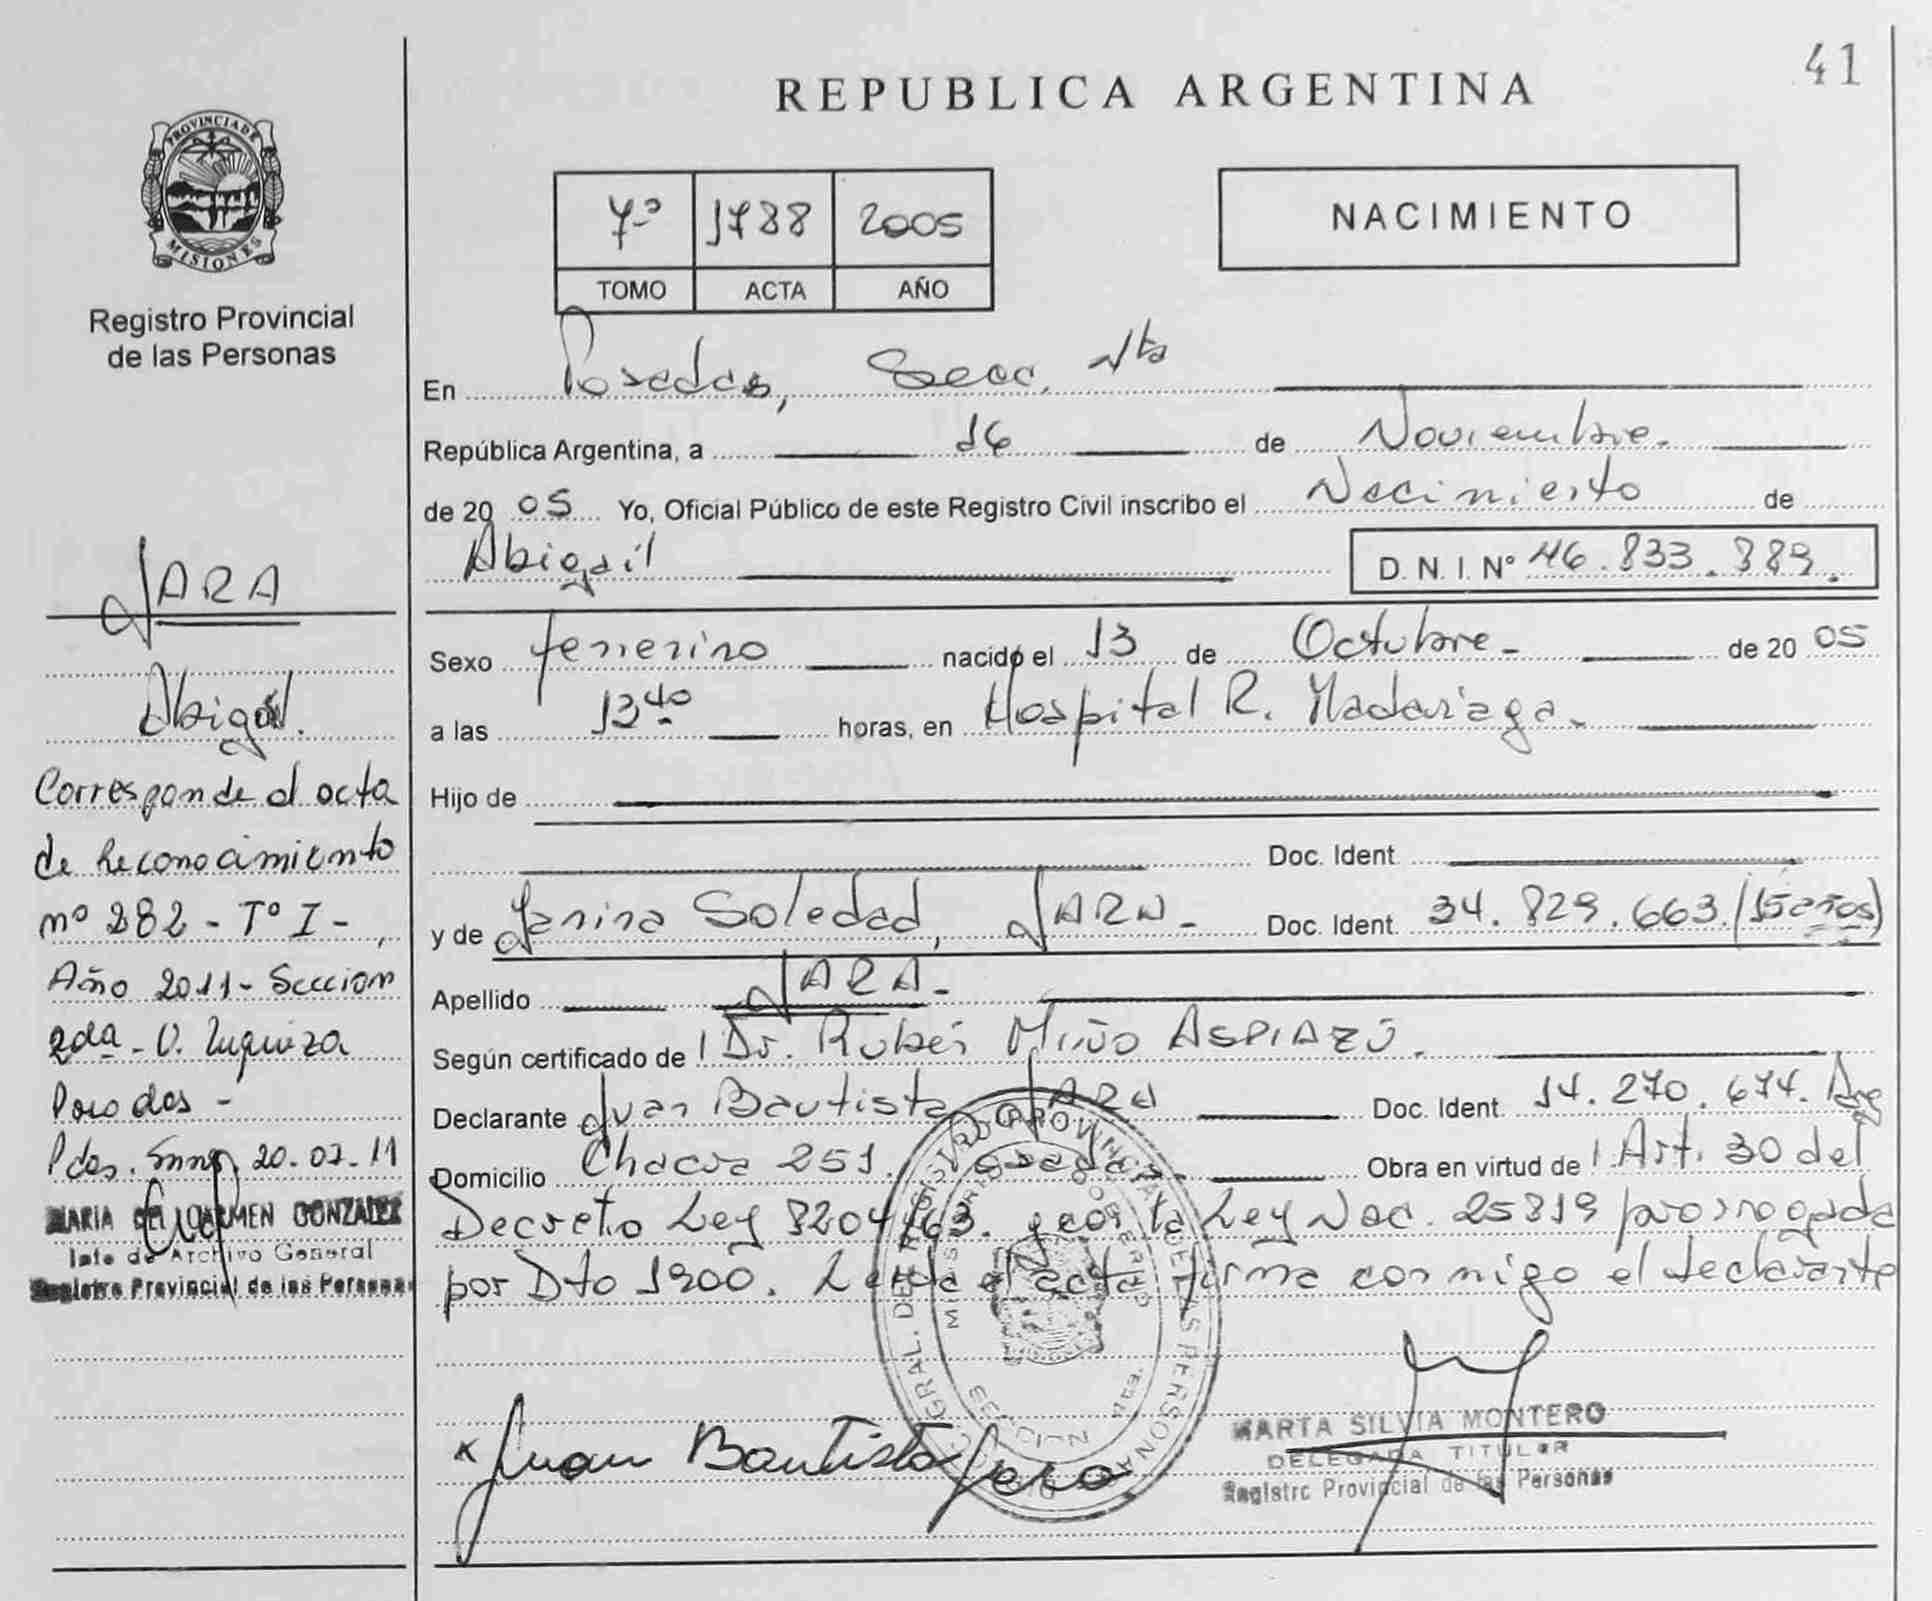 41
REPUBLICA ARGENTINA
PROVINCIA DE
MISIONES
Registro Provincial
de las Personas
7º 1788 2005
TOMO ACTA AÑO
NACIMIENTO
En Posadas, Secc. 4ta
República Argentina, a 16 de Noviembre.
de 2005 Yo, Oficial Público de este Registro Civil inscribo el Nacimiento de
Abigail D. N. I. Nº 46.833.389.
Sexo femenino nacido el 13 de Octubre de 2005
a las 13 40 horas, en Hospital R. Madariaga.
Hijo de
Doc. Ident
y de Janina Soledad, JARA Doc. Ident. 34.829.663. (15 años)
Apellido JARA
Según certificado de Dr. Rubén Miño ASPIAZÚ.
Declarante Juan Bautista JARA Doc. Ident. 14.270.674. Arg
Domicilio Chacra 251. Posadas Obra en virtud de Art. 30 del
Decreto Ley 8204/63. y con la Ley Nac. 25819 prorrogada
por Dto 1900. Leída el acta firma conmigo el declarante
x Juan Bautista Jara
MARTA SILVIA MONTERO
DELEGADA TITULAR
Registro Provincial de las Personas
JARA
Abigail.
Corresponde al acta
de Reconocimiento
nº 282 - Tº I -,
Año 2011 - Seccion
2da - V. Urquiza
Posadas -
Pdas. 20-07-11
MARIA DEL CARMEN GONZALEZ
Jefe de Archivo General
Registro Provincial de las Personas